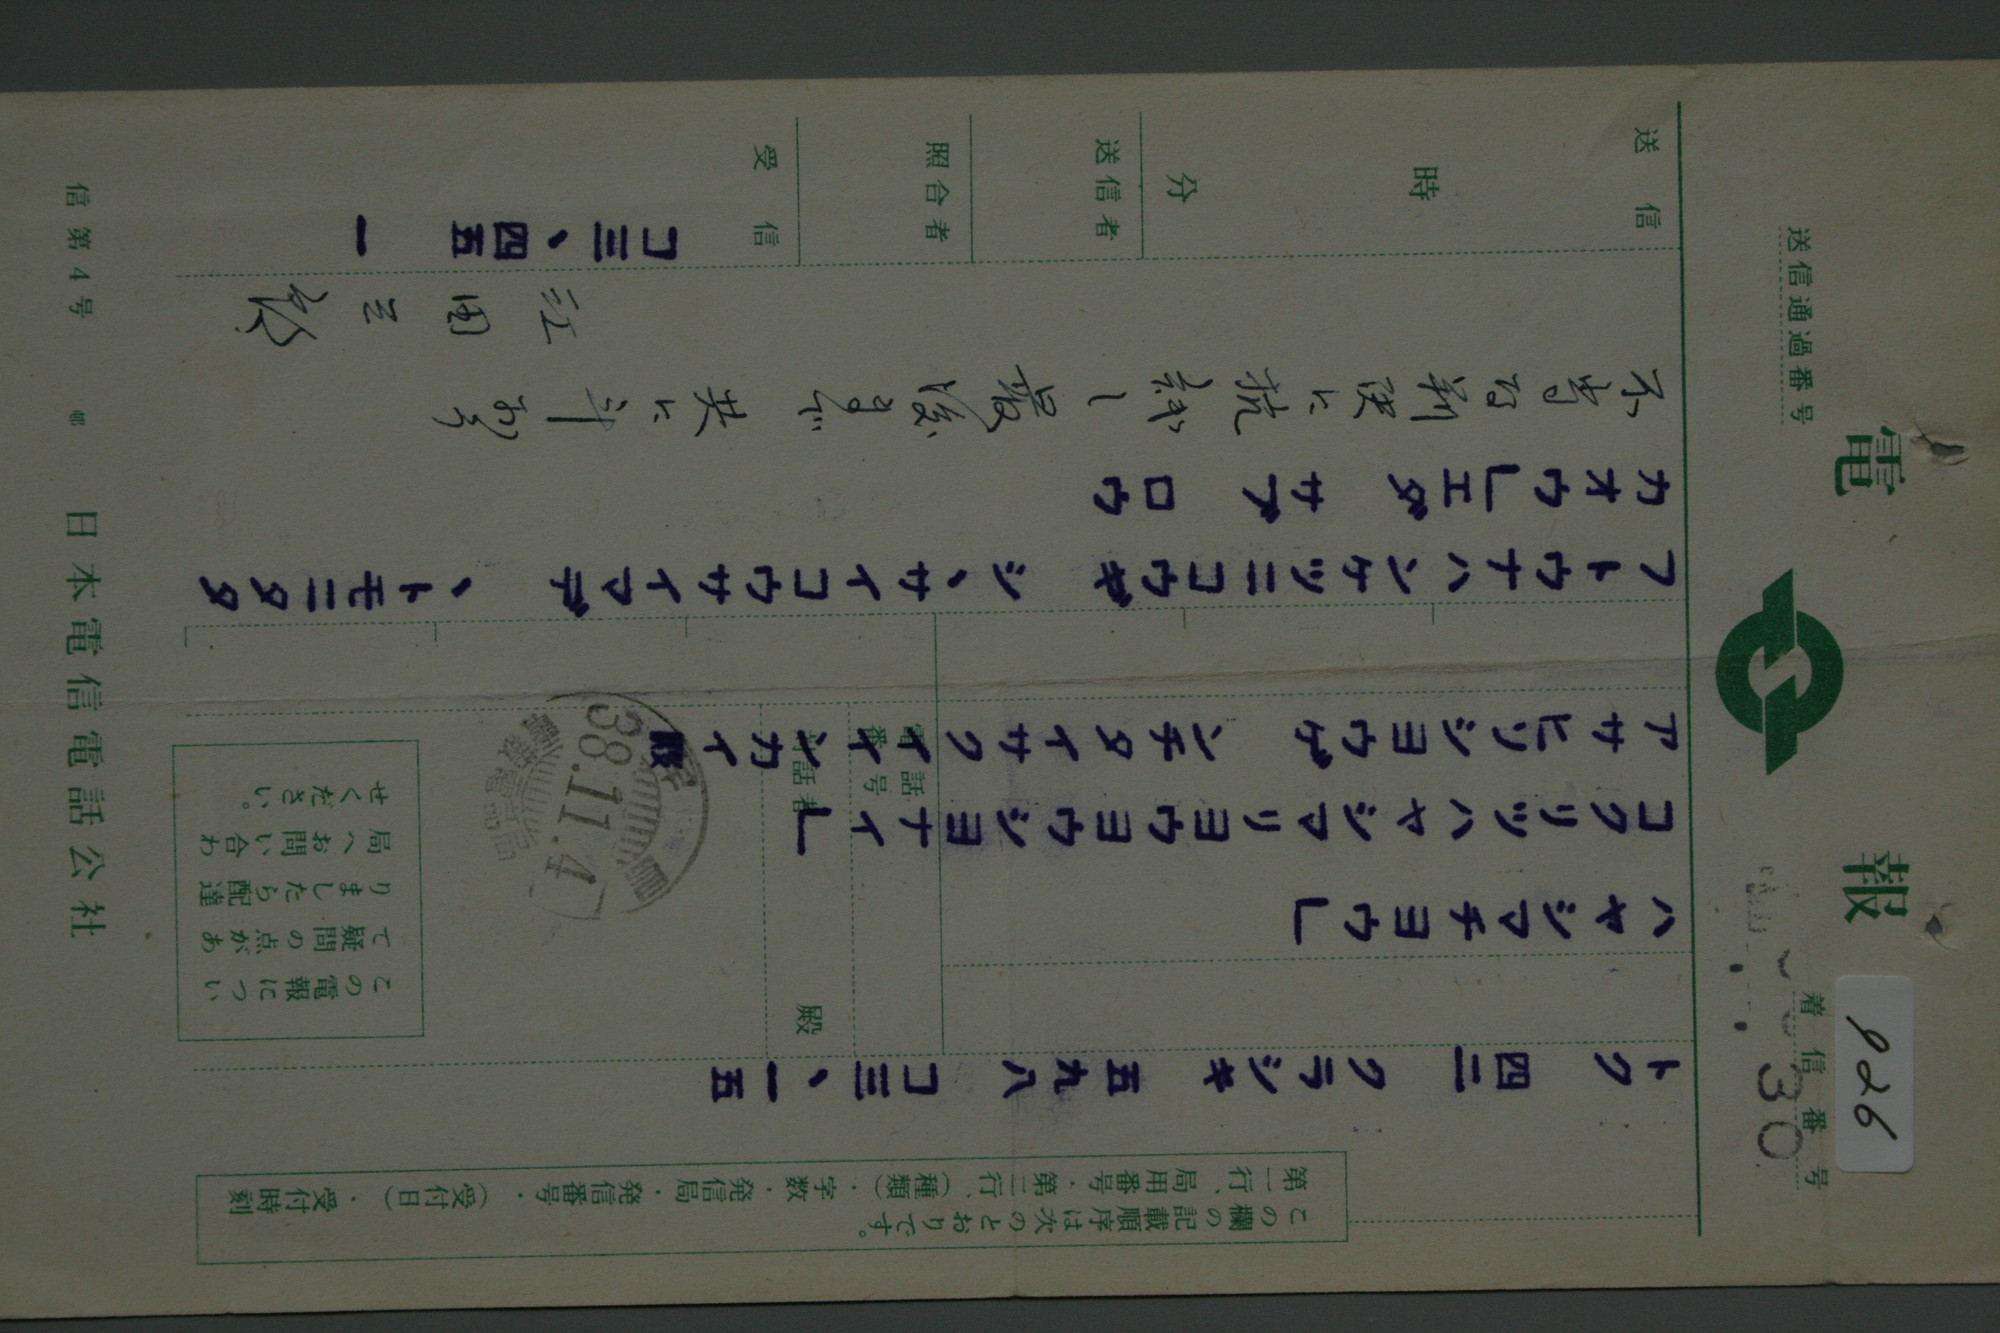 電報
送信通過番号
着信番号
30
926
この欄の記載順序は次のとおりです。
第一行、局用番号・第二行、(種類)・字数・発信局・発信番号・(受付日)・受付時刻
トク 四二 クラシキ 五九八 コ三、一五
ハヤシマチヨウ」
コクリツハヤシマリヨウヨウシヨナイ」
アサヒソシヨウゲ ンチタイサクイインカイ殿
電話番号
受話者
殿
38.11.4
この電報につい
て疑問の点があ
りましたら配達
局へお問い合わ
せください。
フトウナハンケツニコウギ シ、サイコウサイマデ 、トモニタタ
カオウ」エダ サブ ロウ
不当な判決に抗議し最後まで共に斗おう
江田三郎
送信
時
分
送信者
照合者
受信
コ三、四五 一
信第4号
日本電信電話公社